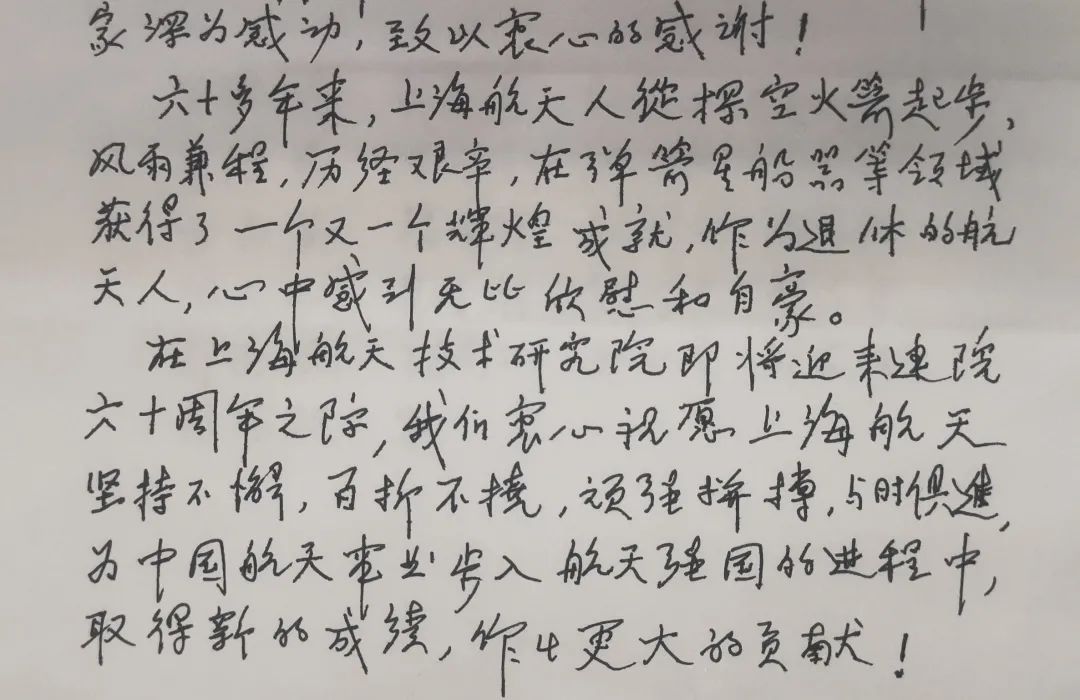 家深为感动，致以衷心的感谢！
六十多年来，上海航天人從探空火箭起步，
风雨兼程，历经艰辛，在弹箭星船器等领域
获得了一个又一个輝煌成就，作为退休的航
天人，心中感到无比欣慰和自豪。
在上海航天技术研究院即将迎来建院
六十周年之际，我们衷心祝愿上海航天
坚持不懈，百折不挠，顽强拼搏，与时俱進，
为中国航天事业步入航天强国的进程中，
取得新的成绩，作出更大的贡献！